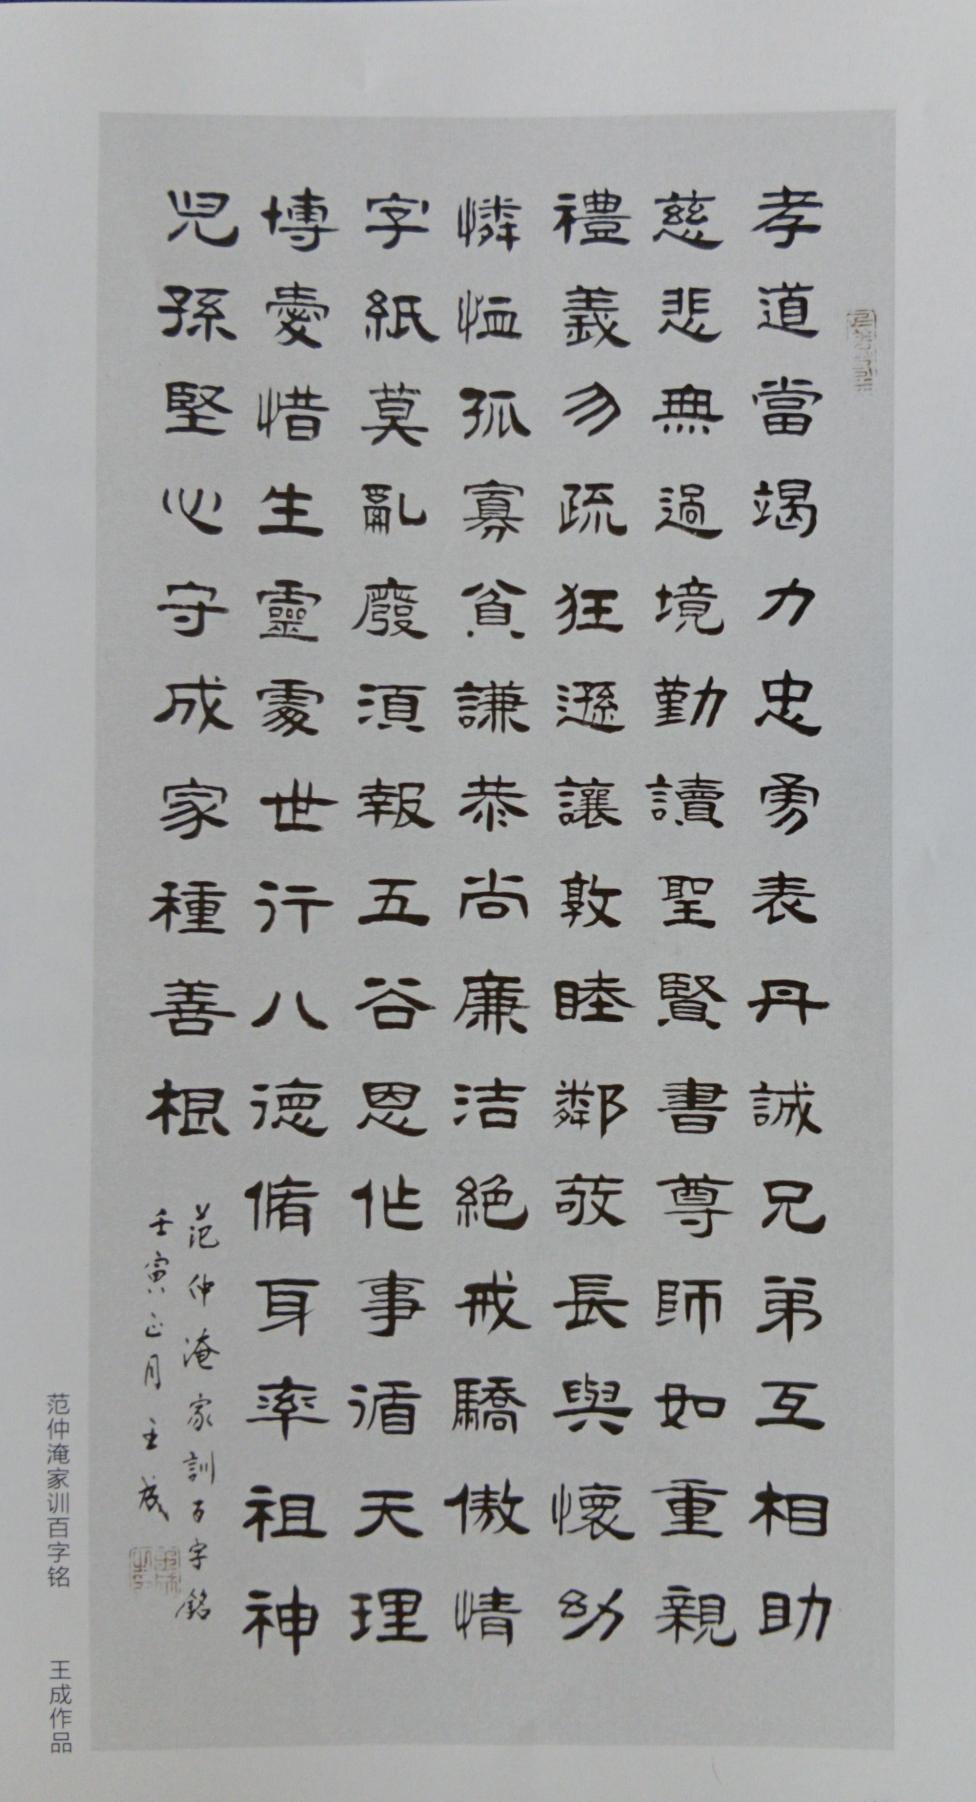 孝道當竭力忠勇表丹誠兄弟互相助
慈悲無過境勤讀聖賢書尊師如重親
禮義勿疏狂遜讓敦睦鄰敬長與懷幼
憐恤孤寡貧謙恭尚廉洁絕戒驕傲情
字紙莫亂廢須報五谷恩作事循天理
博愛惜生靈處世行八德脩身率祖神
兒孫堅心守成家種善根
范仲淹家訓百字銘
壬寅正月王成
范仲淹家训百字铭
王成作品